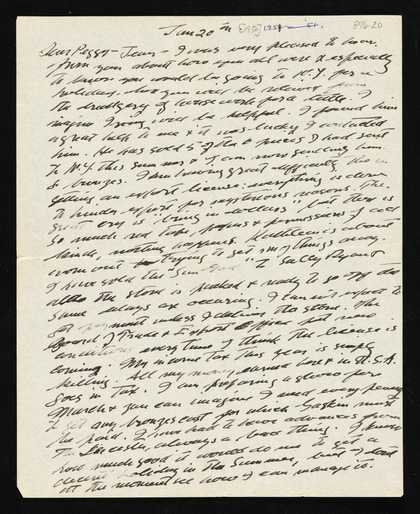 Jan 20th
Dear Peggy - Jean - I was very pleased to hear
from you about how you all were & especially
to know you would be going to N.Y. for a
holiday. And you will be relieved from
the drudgery of housework for a little. I
Irving would be helpful. I found him
a great help to me & it was lucky I contacted
him. He has sold 5 of the pieces I had sent
to N.Y. this summer & I am now sending him
6 bronzes. I am having great difficulty in
getting an export license: everything is done
to hinder export for mysterious reasons. The
great cry is "bring in dollars" but there is
so much red tape, papers & permissions of all
kinds, nothing happens. Kathleen is about
worn out trying to get my things away.
I have sold the "Sun God" to Sally Ryan &
altho the stone is packed & ready to go off the
same delays are occurring. I can not expect to
get payment unless I deliver the stone. The
Board of Trade & Export Office put new
conditions every time I think the license is
coming. My income tax this year is simply
killing. All my money earned here & in U.S.A.
goes in tax. I am preparing a show for
March & you can imagine I need every penny
to get my bronzes cast for which Gaskin must
be paid. I have had to have advances from
the Leicester, always a bad thing. I know
how much good it would do me to get a
decent holiday in the Summer, but I don't
at the moment see how I can manage it.